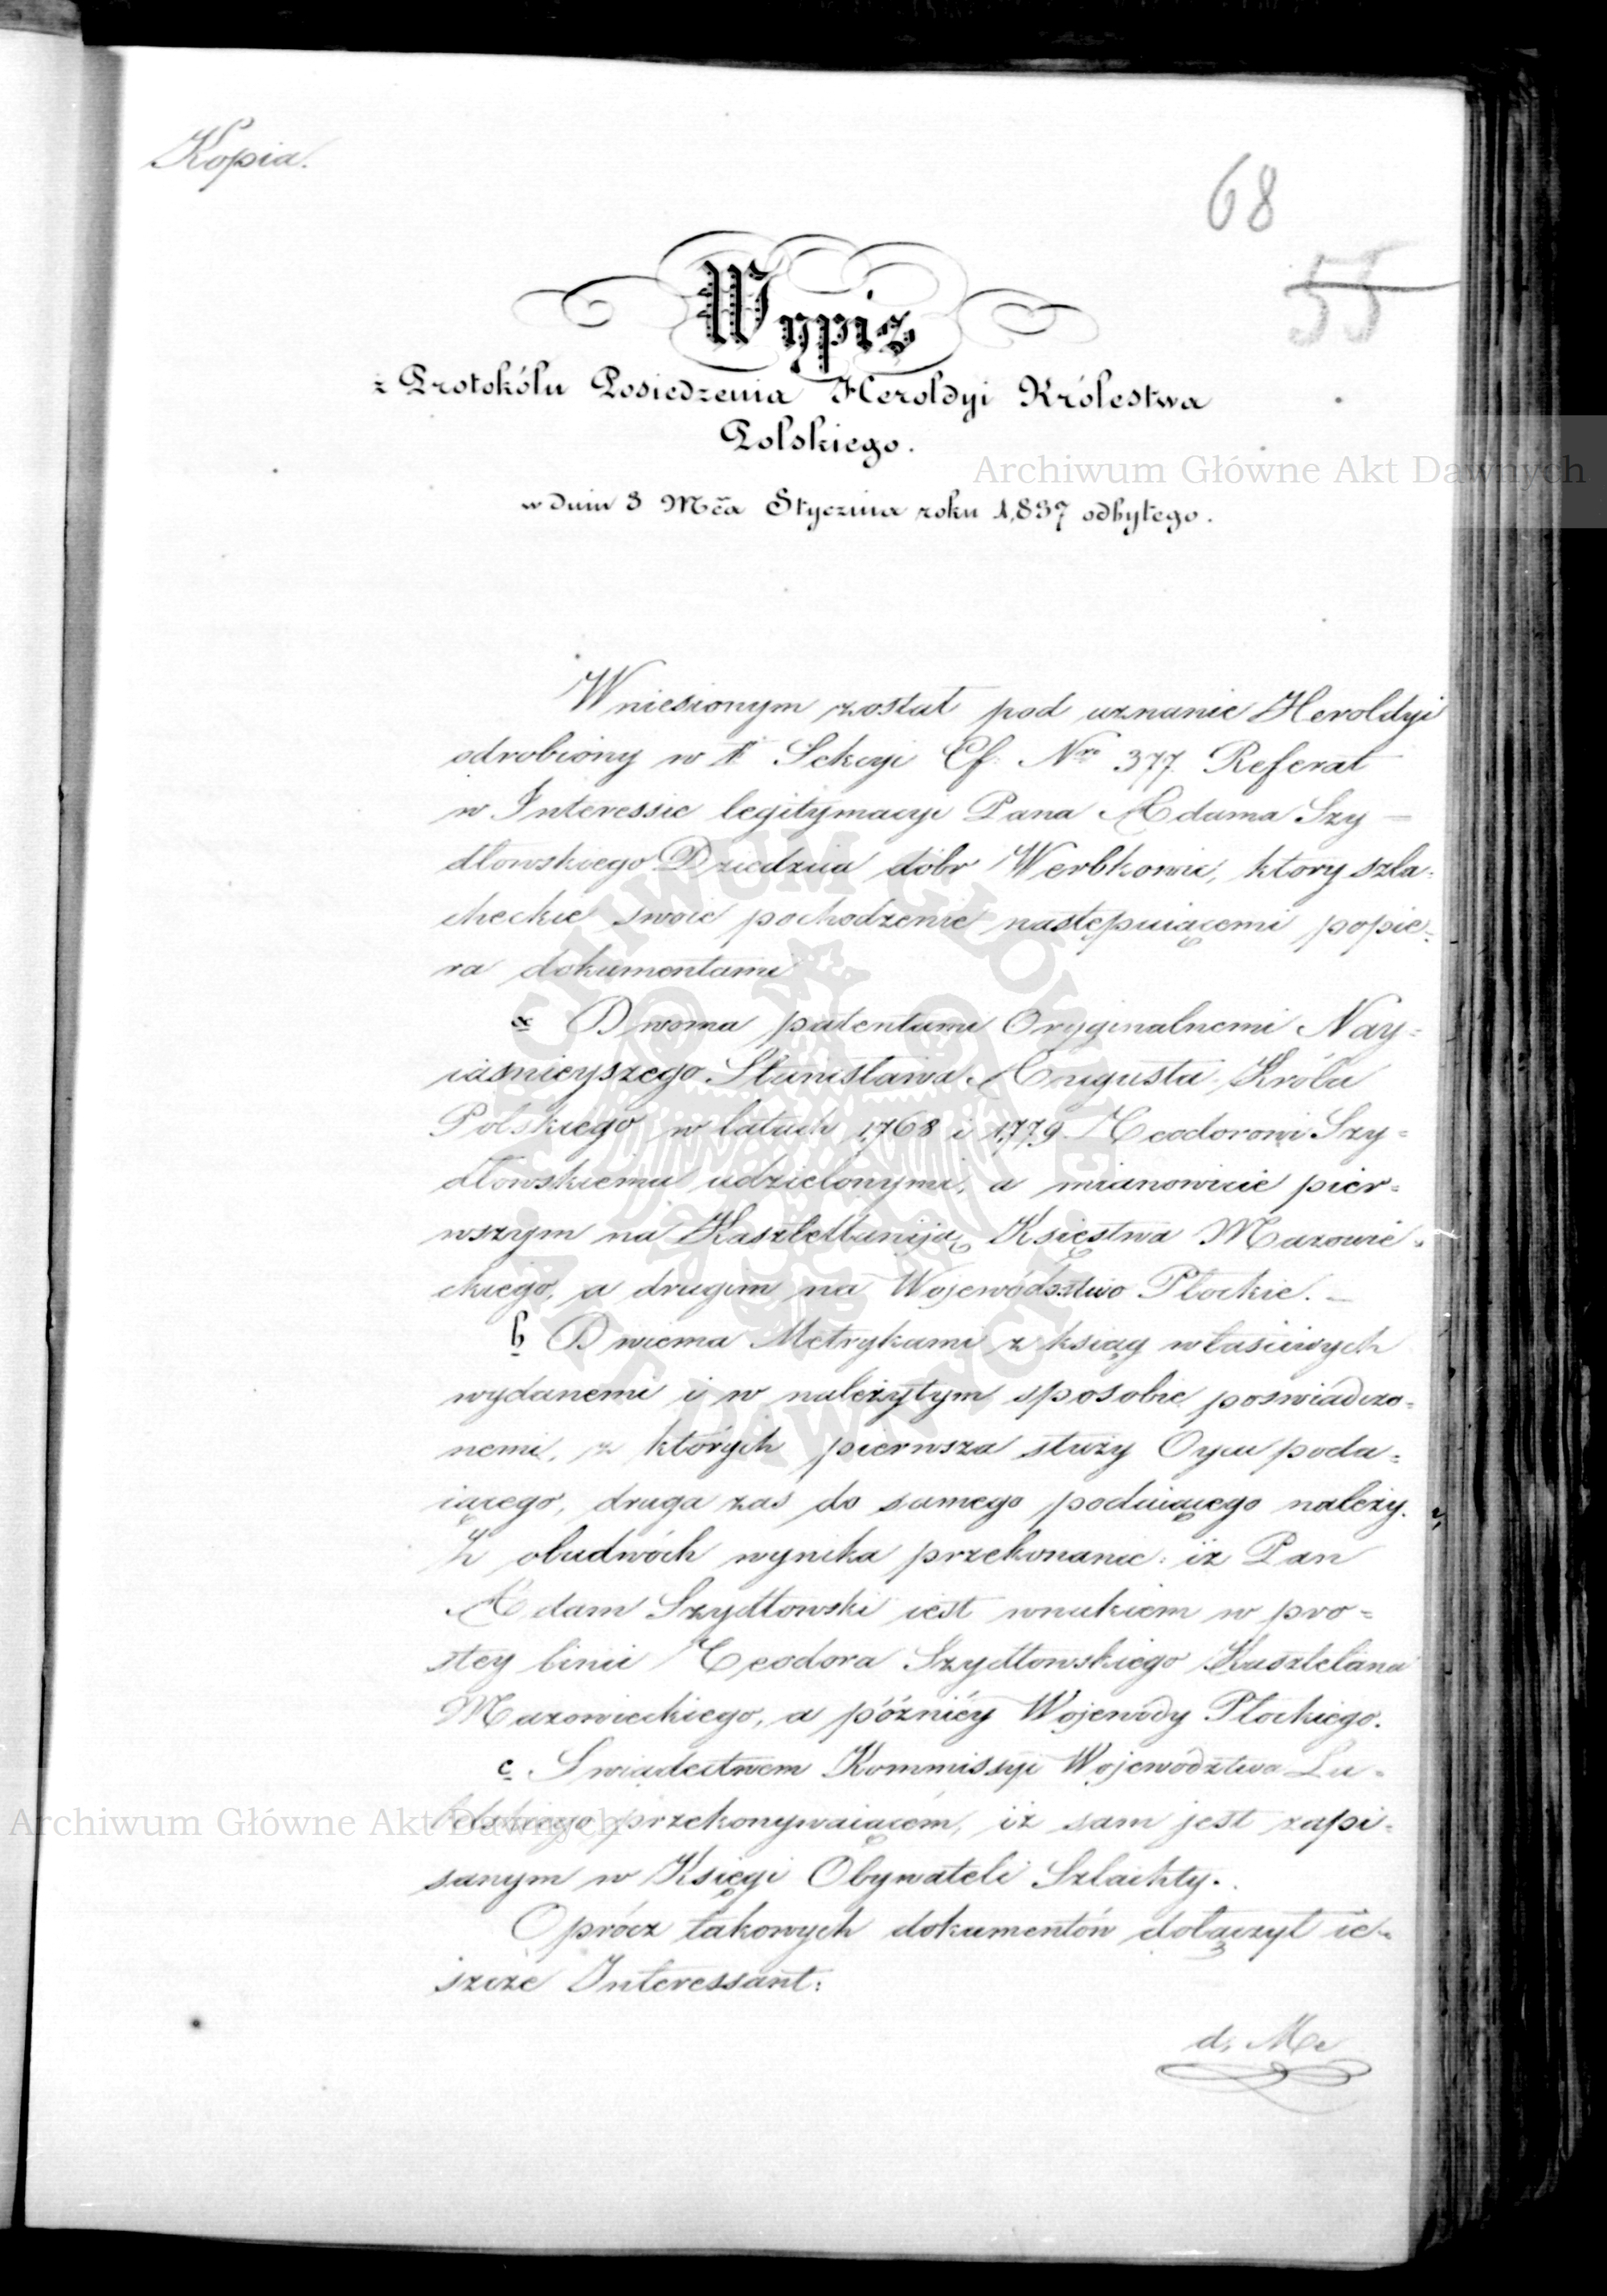 Kopia.
68
55
Wypis
z Protokółu Posiedzenia Heroldyi Królestwa
Polskiego.
Archiwum Główne Akt Dawnych
w dniu 3 Mca Stycznia roku 1,837 odbytego.
Wniesionym został pod uznanie Heroldyi
odrobiony w Sekcyi Cf. Nro 377. Referat
w Interessie legitymacyi Pana Adama Szy-
dłowskiego Dziedzica dóbr Werbkowic, ktory szla=
checkie swoie pochodzenie następuiącemi popie=
ra dokumentami
a Dwoma patentami Oryginalnemi Nay=
iasnieyszego Stanisława Augusta Króla
Polskiego w latach 1768 i 1779 Teodorowi Szy=
dłowskiemu udzielonymi, a mianowicie pier=
wszym na Kasztellaniją Księstwa Mazowie=
ckiego, a drugim na Wojewódsztwo Płockie. _
b Dwiema Metrykami z ksiąg właściwych
wydanemi i w należytym sposobie poswiadczo=
nemi, z których pierwsza służy Oycu poda=
iącego, druga zas do samego podaiącego należy.
Z obudwóch wynika przekonanie: iż Pan
Adam Szydłowski iest wnukiem w pro=
stey linii Teodora Szydłowskiego Kasztelana
Mazowieckiego, a późniéy Wojewody Płockiego.
c Swiadectwem Kommissyi Województwa Lu=
belskiego przekonywaiącém, iż sam jest zapi=
Archiwum Główne Akt Dawnych
sanym w Księgi Obywateli Szlachty.
Oprócz takowych dokumentów dołączył ie=
szcze Interessant:
d, Me
ARCHIWUM GŁÓWNE AKT DAWNYCH